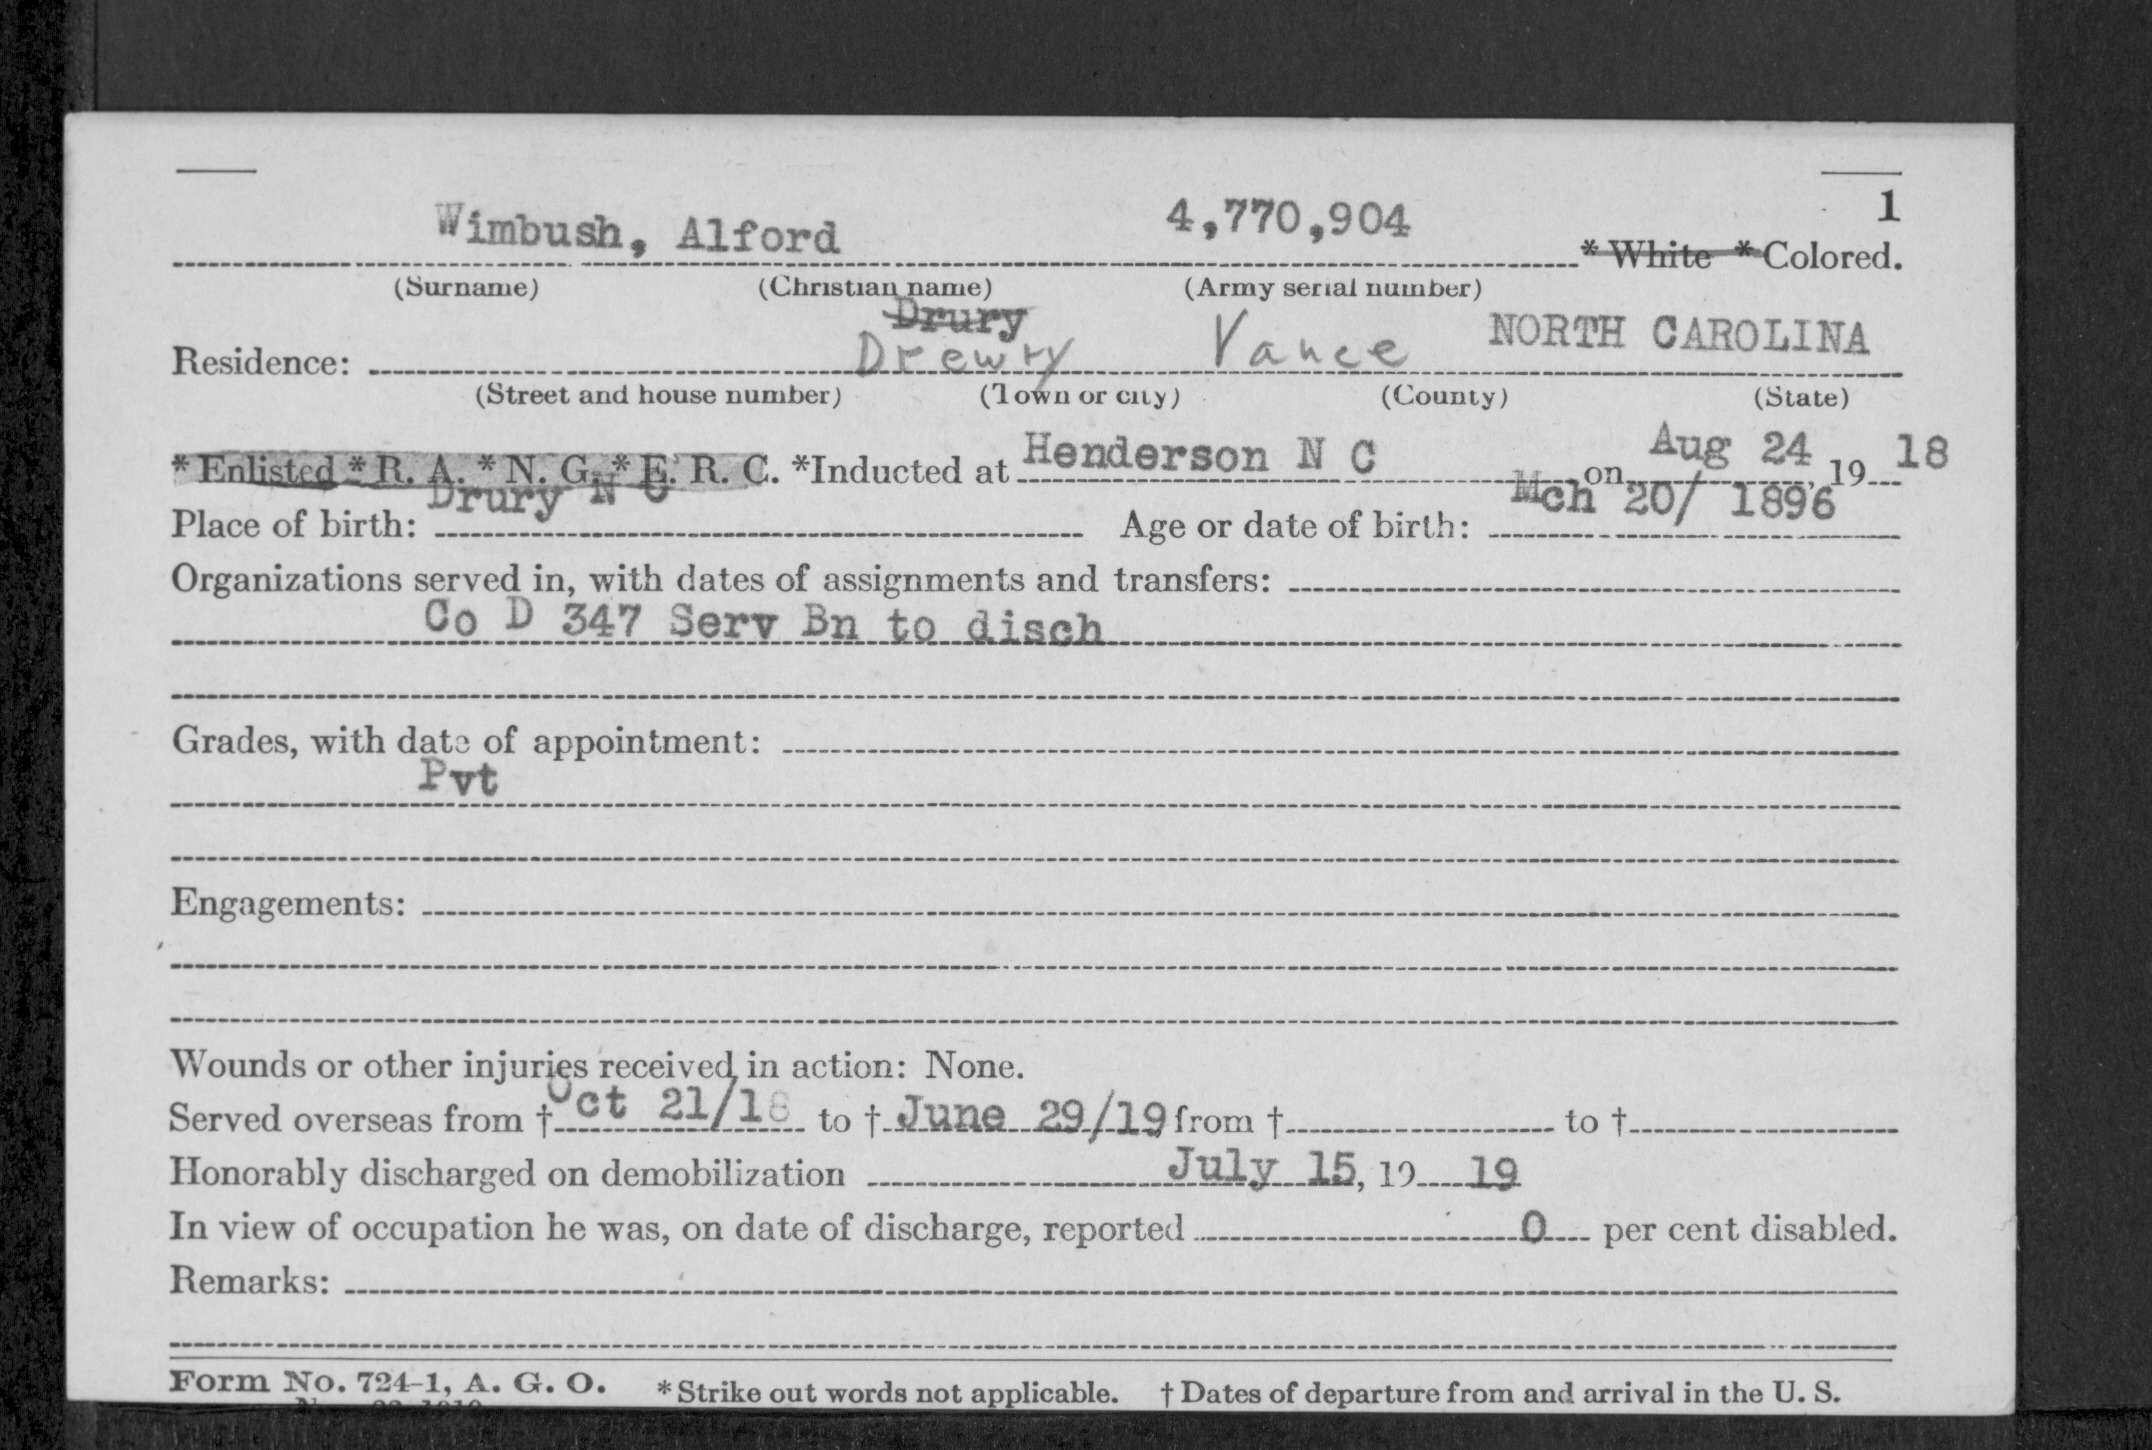 1
Wimbush, Alford 4,770,904 * White * Colored.
(Surname) (Christian name) (Army serial number)
Drury
Residence: Drewry Vance NORTH CAROLINA
(Street and house number) (Town or city) (County) (State)
* Enlisted * R. A. * N. G. * E. R. C. *Inducted at Henderson N C on Aug 24, 19 18
Place of birth: Drury N C Age or date of birth: Mch 20/ 1896
Organizations served in, with dates of assignments and transfers:
Co D 347 Serv Bn to disch
Grades, with date of appointment:
Pvt
Engagements:
Wounds or other injuries received in action: None.
Served overseas from † Oct 21/18 to † June 29/19 from † to †
Honorably discharged on demobilization July 15, 19 19
In view of occupation he was, on date of discharge, reported 0 per cent disabled.
Remarks:
Form No. 724-1, A. G. O. * Strike out words not applicable. † Dates of departure from and arrival in the U. S.